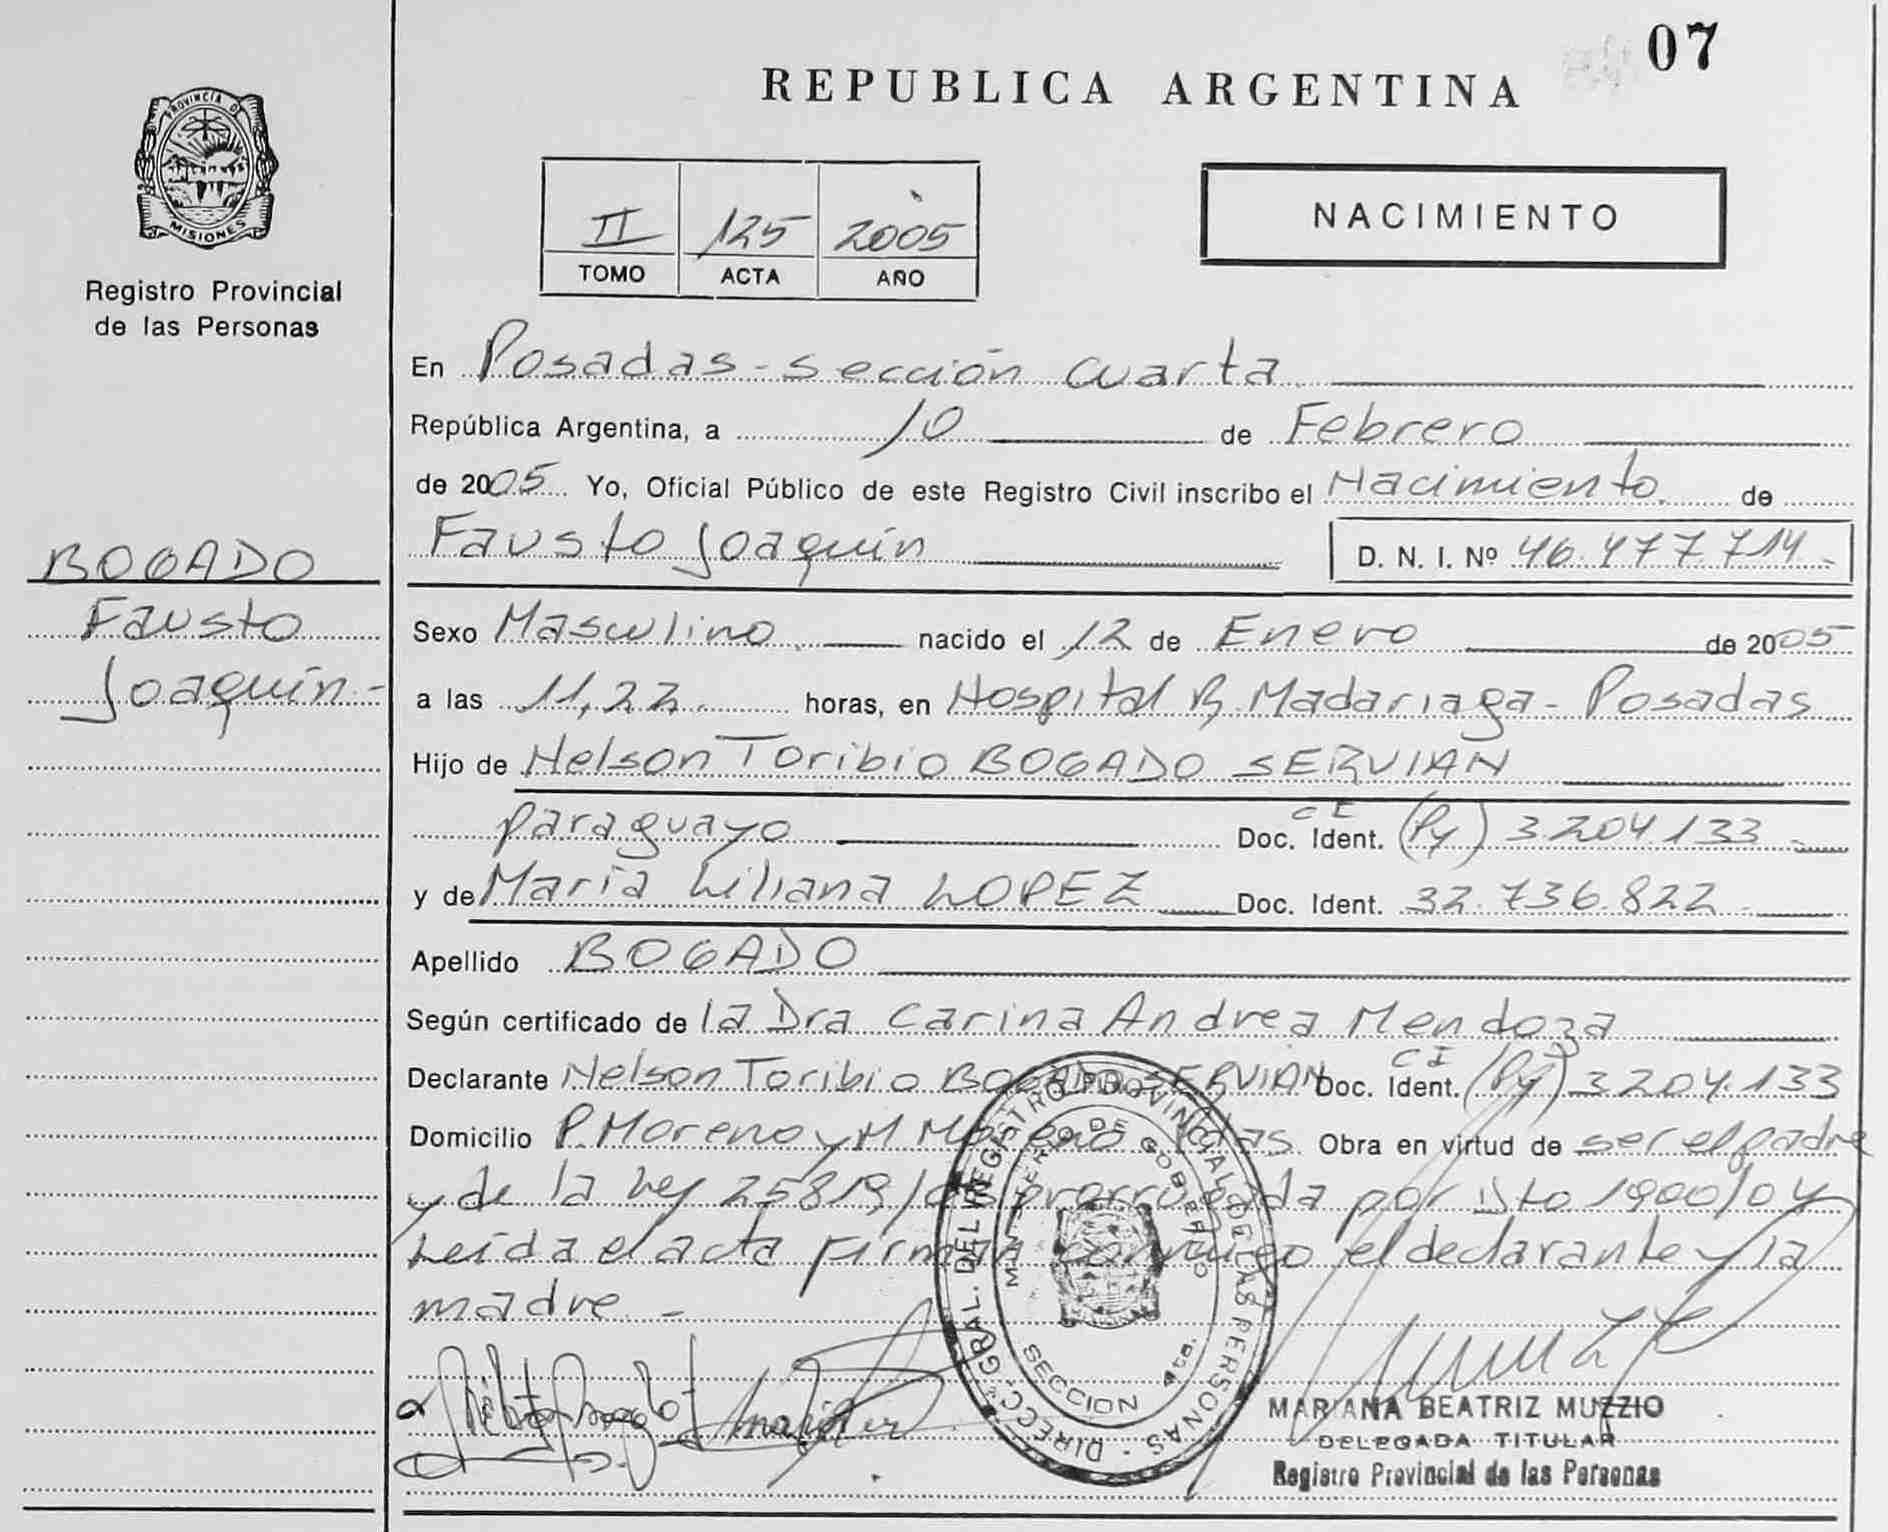 07
REPUBLICA ARGENTINA
PROVINCIA D
MISIONES
Registro Provincial
de las Personas
II 125 2005
TOMO ACTA AÑO
NACIMIENTO
En Posadas - sección cuarta
República Argentina, a 10 de Febrero
de 2005 Yo, Oficial Público de este Registro Civil inscribo el Nacimiento de
Fausto Joaquín D. N. I. Nº 46.477.714.-
BOGADO
Fausto
Joaquín.-
Sexo Masculino nacido el 12 de Enero de 2005
a las 11,22. horas, en Hospital R. Madariaga - Posadas
Hijo de Nelson Toribio BOGADO SERVIAN
paraguayo Doc. Ident. (Py) 3.204.133
y de María Liliana LOPEZ Doc. Ident. 32.736.822
Apellido BOGADO
Según certificado de la Dra Carina Andrea Mendoza
Declarante Nelson Toribio BOGADO SERVIAN Doc. Ident. CI (Py) 3204.133
Domicilio P. Moreno y M Moreno Pdas. Obra en virtud de ser el padre
y de la Ley 25819/ prorrogada por Dto 1900/04
Leída el acta firman conmigo el declarante y la
madre. -
DIRECC. GRAL. DEL REGISTRO PROVINCIAL DE LAS PERSONAS
MINISTERIO DE GOBIERNO
SECCION 4ta.
MARIANA BEATRIZ MUZZIO
DELEGADA TITULAR
Registro Provincial de las Personas